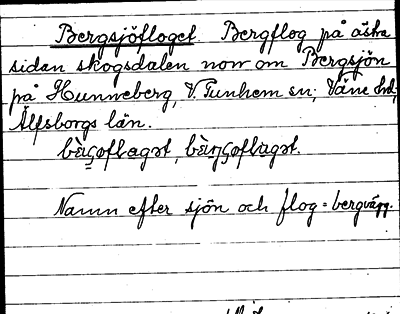 Bergsjöfloget. Bergflog på östra
sidan skogsdalen norr om Bergsjön
på Hunneberg, V. Tunhem sn; Väne hd,
Älfsborgs län.
Namn efter sjön och flog = bergvägg.